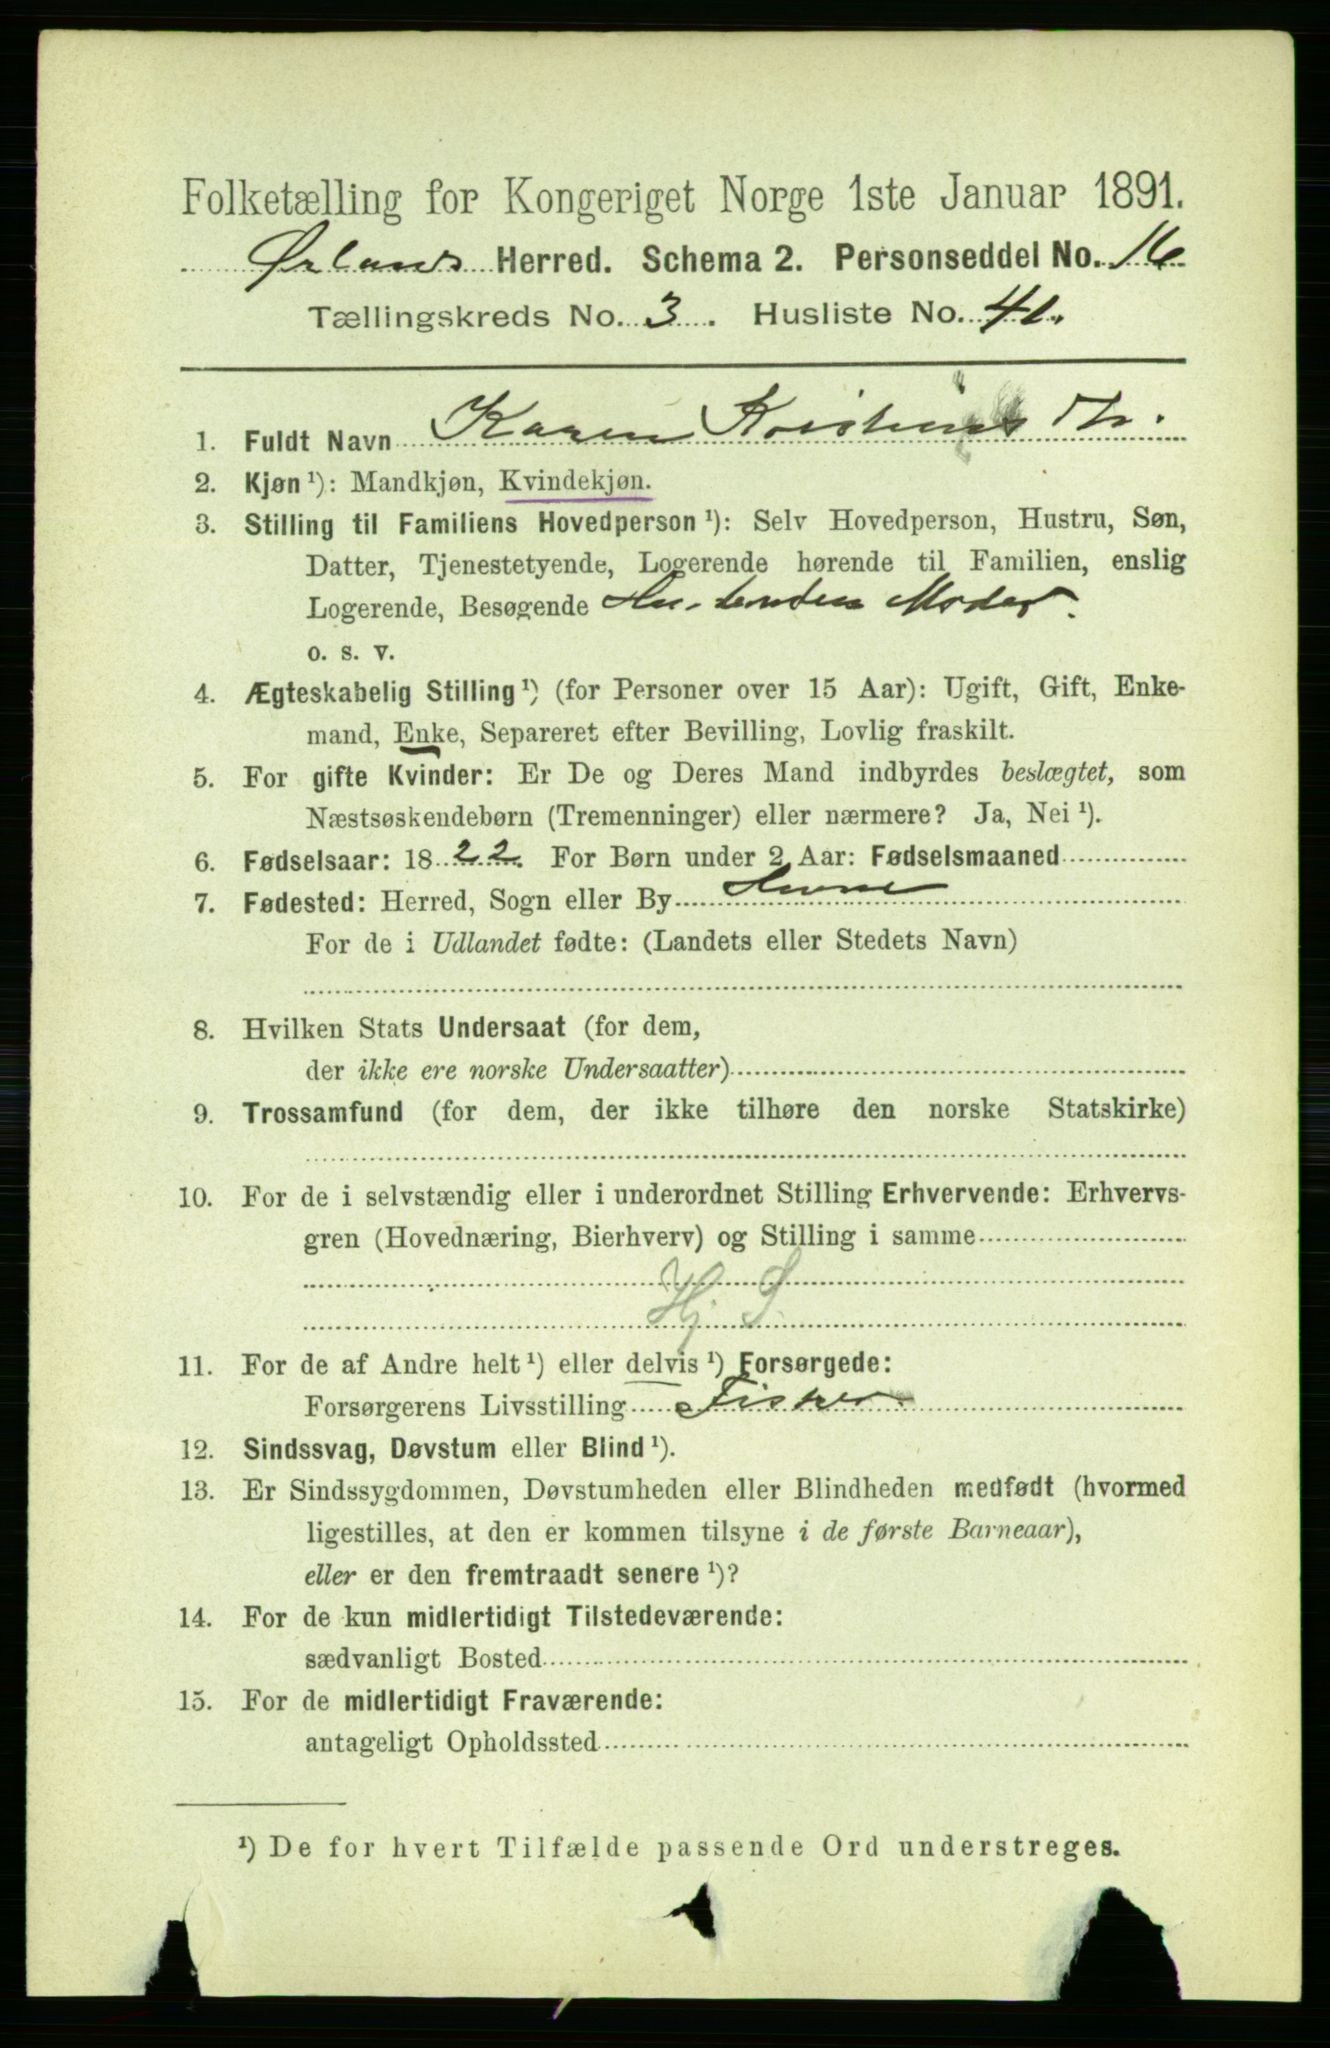 Folketælling for Kongeriget Norge 1ste Januar 1891.
Ørlands Herred. Schema 2. Personseddel No. 16
Tællingskreds No. 3. Husliste No. 41.
1. Fuldt Navn Karen
2. Kjøn ¹): Mandkjøn, Kvindekjøn.
3. Stilling til Familiens Hovedperson ¹): Selv Hovedperson, Hustru, Søn,
Datter, Tjenestetyende, Logerende hørende til Familien, enslig
Logerende, Besøgende Moder.
o. s. v.
4. Ægteskabelig Stilling ¹) (for Personer over 15 Aar): Ugift, Gift, Enke-
mand, Enke, Separeret efter Bevilling, Lovlig fraskilt.
5. For gifte Kvinder: Er De og Deres Mand indbyrdes beslægtet, som
Næstsøskendebørn (Tremenninger) eller nærmere? Ja, Nei ¹).
6. Fødselsaar: 1822. For Børn under 2 Aar: Fødselsmaaned
7. Fødested: Herred, Sogn eller By Hevne
For de i Udlandet fødte: (Landets eller Stedets Navn)
8. Hvilken Stats Undersaat (for dem,
der ikke ere norske Undersaatter)
9. Trossamfund (for dem, der ikke tilhøre den norske Statskirke)
10. For de i selvstændig eller i underordnet Stilling Erhvervende: Erhvervs-
gren (Hovednæring, Bierhverv) og Stilling i samme
Hj S.
11. For de af Andre helt ¹) eller delvis ¹) Forsørgede:
Forsørgerens Livsstilling Fisker
12. Sindssvag, Døvstum eller Blind ¹).
13. Er Sindssygdommen, Døvstumheden eller Blindheden medfødt (hvormed
ligestilles, at den er kommen tilsyne i de første Barneaar),
eller er den fremtraadt senere ¹)?
14. For de kun midlertidigt Tilstedeværende:
sædvanligt Bosted
15. For de midlertidigt Fraværende:
antageligt Opholdssted
¹) De for hvert Tilfælde passende Ord understreges.